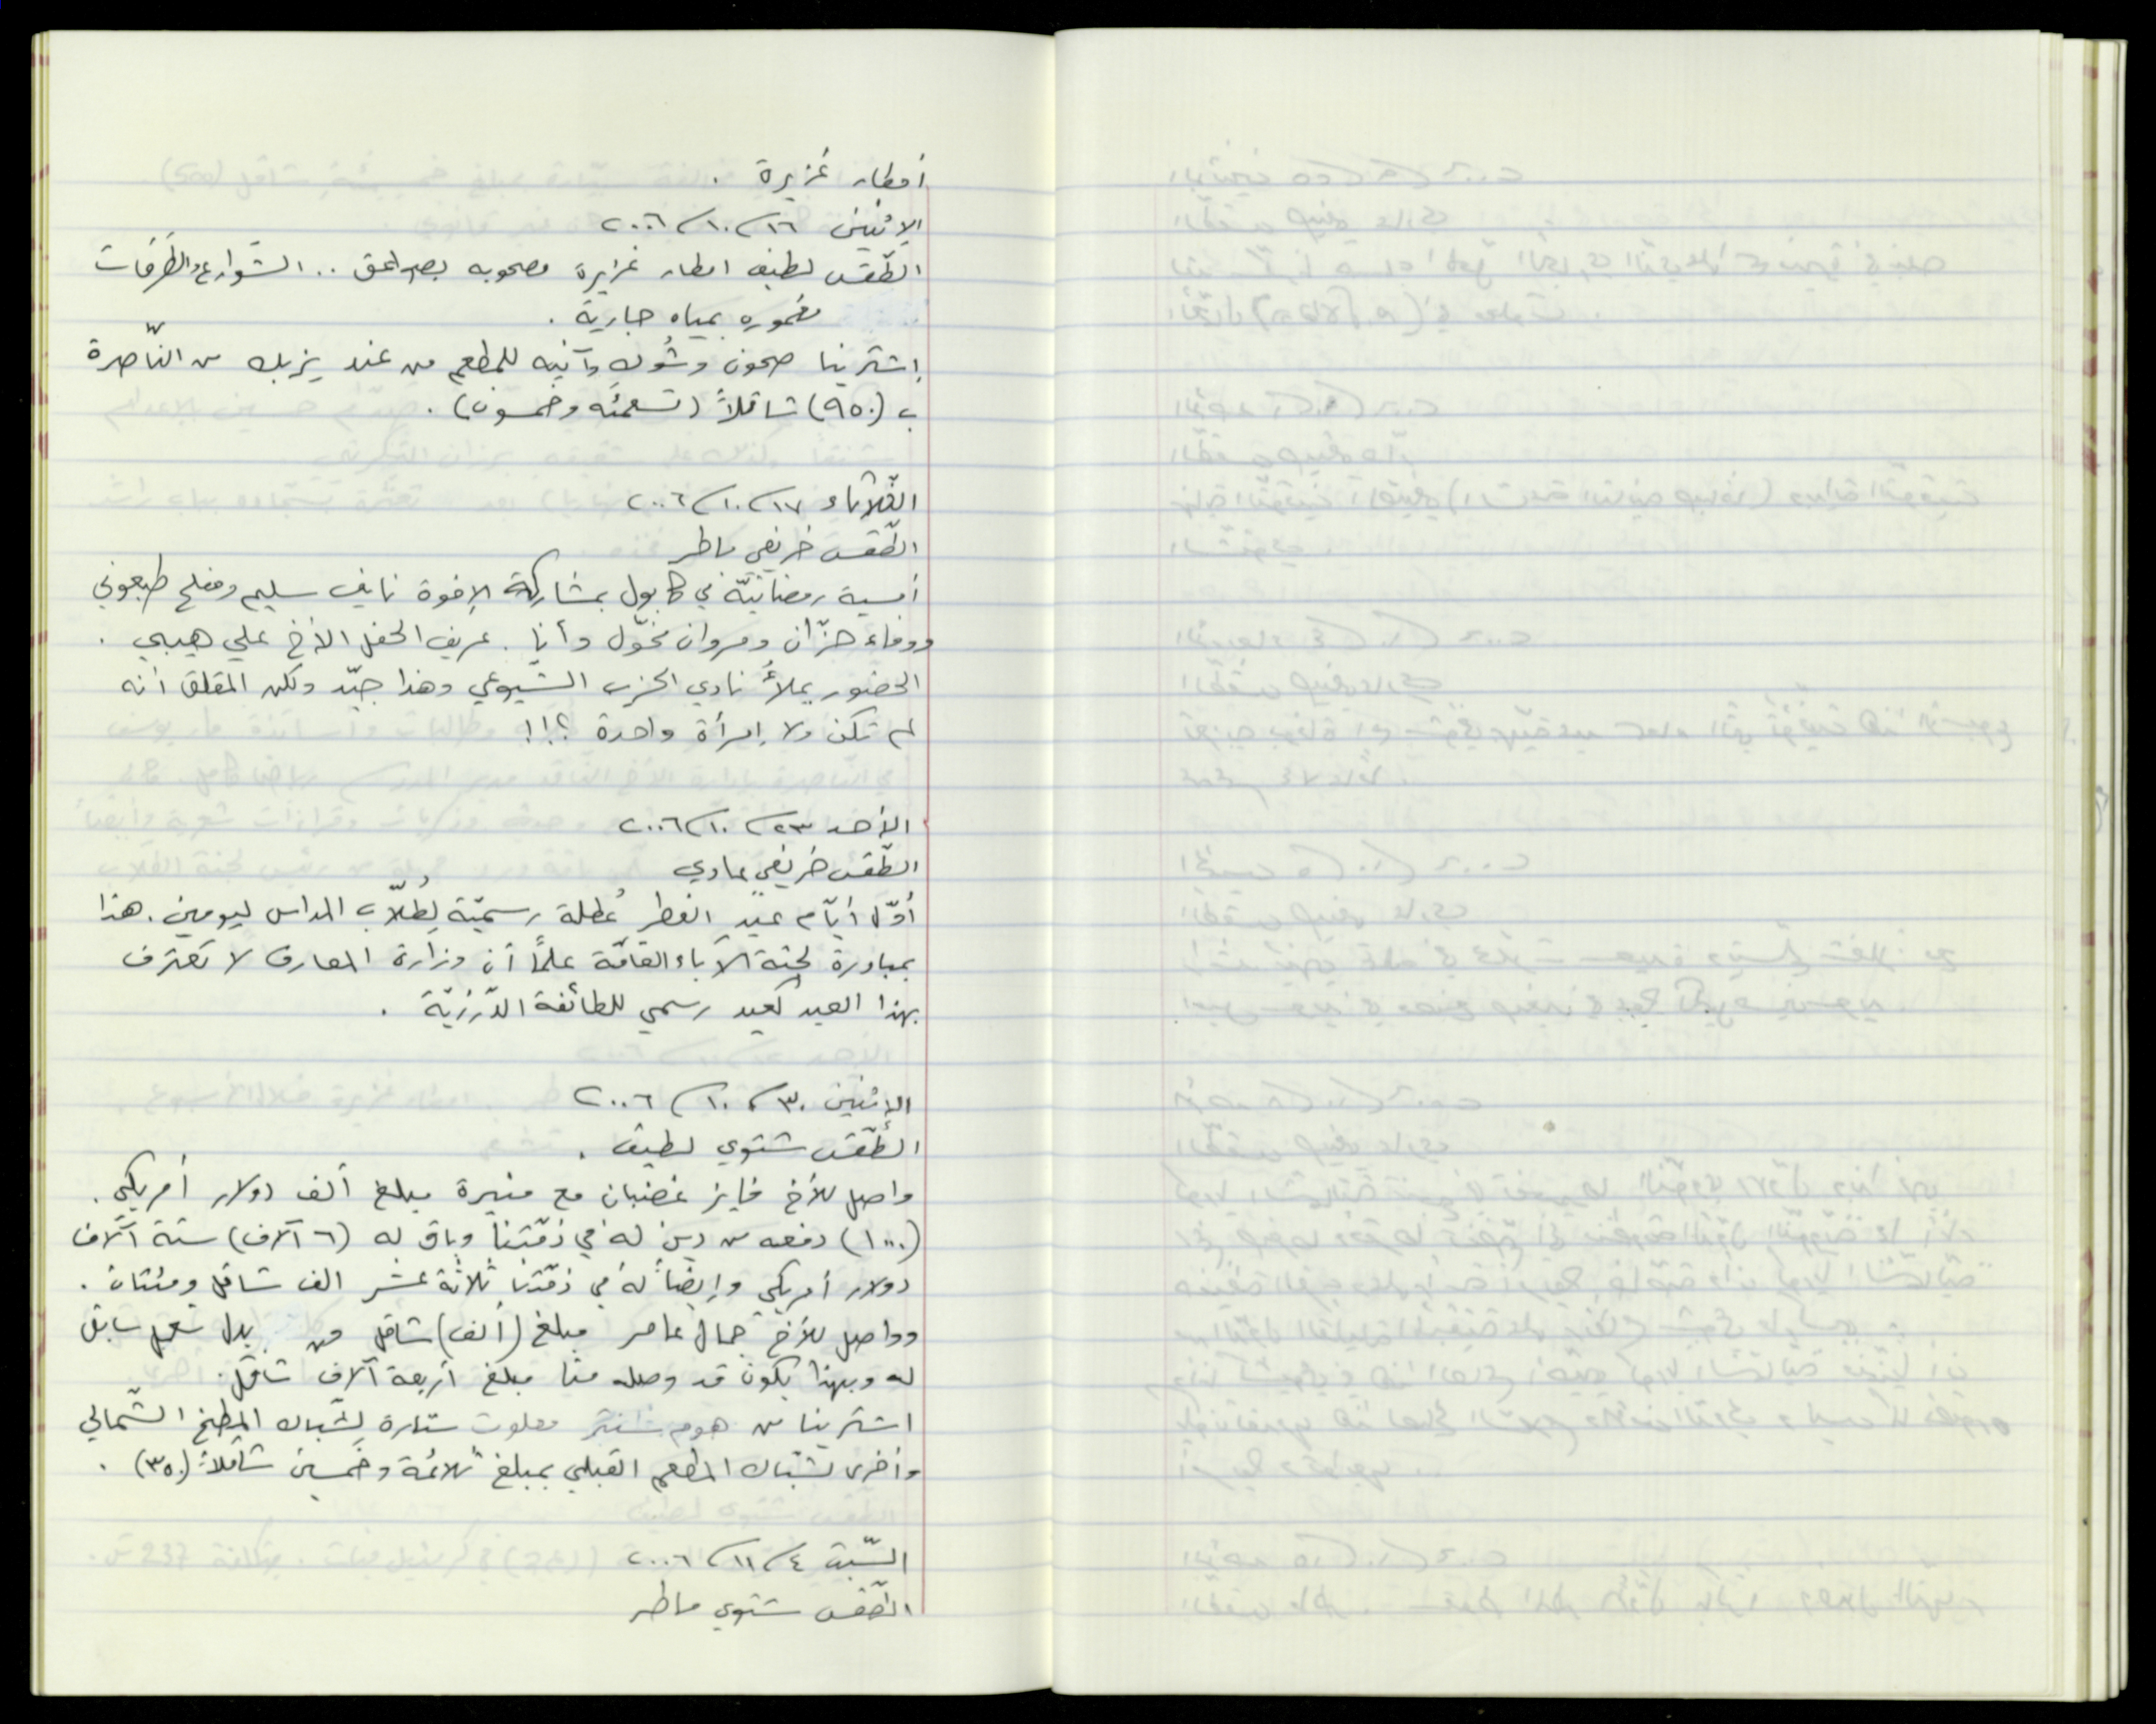 أمطار غزيرة .
الإثنين ١٦/١٠/٢٠٠٦
الطّقس لطيف امطار غزيرة مصحوبه بصواعق .. الشّوارع والطّرقات
مغموره بمياه جارية .
إشترينا صحون وشُوك وآنيه للمطعم من عند يزبك من النّاصرة
ب (٩٥٠) شاقلاً (تسعمئه وخمسون) .
الثّلاثاء ١٧/١٠/٢٠٠٦
الطّقس خريفي ماطر
أمسية رمضانيّة في كابول بمشاركة الإخوة نايف سليم ومفلح طبعوني
ووفاء حزّان ومروان مخّول وأنا . عريف الحفل الأخ علي هيبي .
الحضور يملأ نادي الحزب الشيوعي وهذا جيّد ولكن المقلق أنه
لم تكن ولا إمرأة واحدة ؟!!
الأحد ٢٣/١٠/٢٠٠٦
الطّقس خريفي عادي
أوّل أيّام عيد الفطر عُطلة رسميّة لِطُلّاب المداس ليومين . هذا
بمبادرة لجنة الآباء العامّة علماً أن وزارة المعارف لا تعترف
بهذا العيد كعيد رسمي للطائفة الدّرزيّة .
الإثنين ٣٠/١٠/٢٠٠٦
الطّقس شتوي لطيف .
واصل للأخ فايز غضبان مع منيرة مبلغ ألف دولار أمريكي .
(١٠٠٠) دفعه من دين له في ذمّتنا وباق له (٦ آلاف) ستة آلاف
دولار أمريكي وإيضاً له في ذمّتنا ثلاثة عشر الف شاقل ومئتان .
وواصل للأخ جمال عامر مبلغ (ألف) شاقل من بدل شغل سابق
له وبهذا يكون قد وصله منا مبلغ أربعة آلاف شاقل .
اشترينا من هوم سنتر معلوت ستارة لشّباك المطبخ الشّمالي
وأخرى لشبّاك المطعم القبلي بمبلغ ثلاثمئة وخمسين شاقلاً (٣٥٠) .
السّبت ٤/١١/٢٠٠٦
الطّقس شتوي ماطر